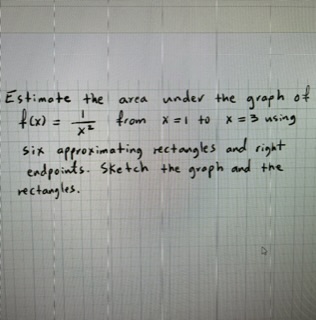 Estimate the area under the graph of
f(x) = 1/x² from x = 1 to x = 3 using
six approximating rectangles and right
endpoints. Sketch the graph and the
rectangles.